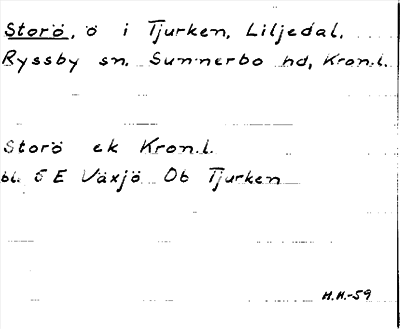 Storö, ö i Tjurken, Liljedal,
Ryssby sn. Sunnerbo hd, Kron.l.
Storö ek Kron.l.
bl. 5 E Växjö Ob Tjurken
H.H.-59